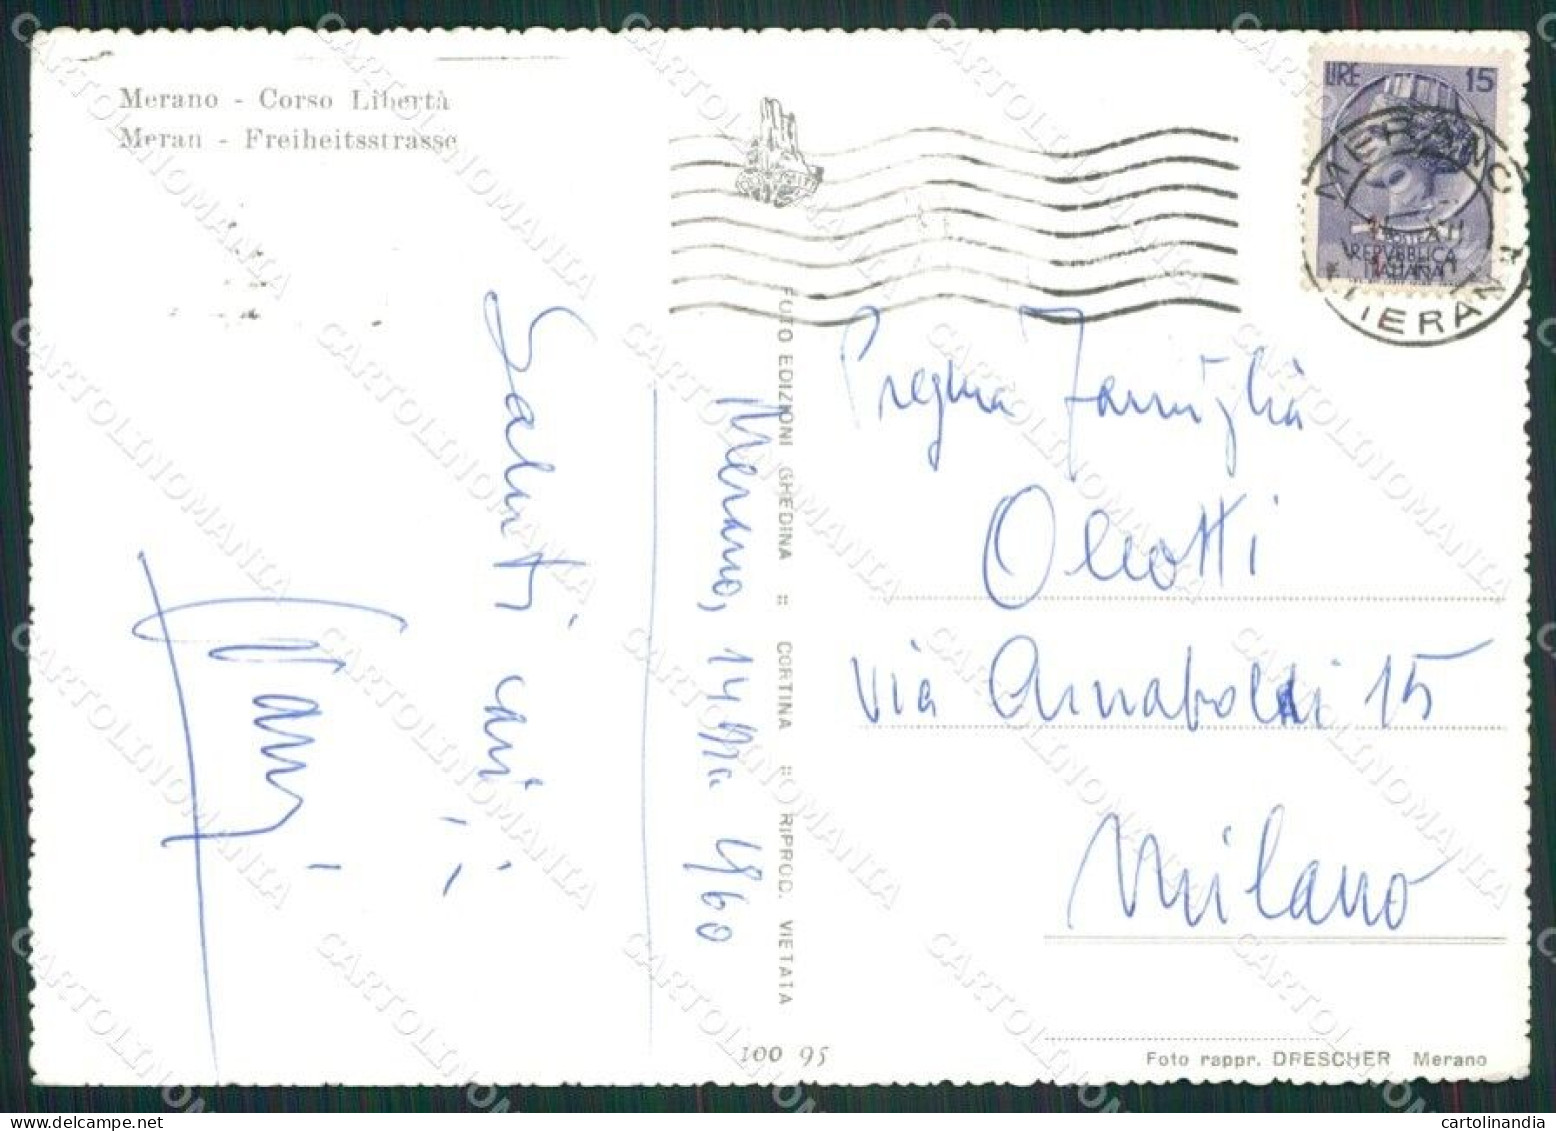 Merano - Corso Libertà
Meran - Freiheitsstrasse
LIRE 15
POSTE
REPVBBLICA
ITALIANA
MERANO
MERAN
Saluti cari
Merano, 14 Ma 1960
FOTO EDIZIONI GHEDINA :: CORTINA :: RIPROD. VIETATA
Pregma Famiglia
Olcotti
via Annaboldi 15
Milano
100 95
Foto rappr. DRESCHER Merano
CARTOLINOMANIA
cartolinandia